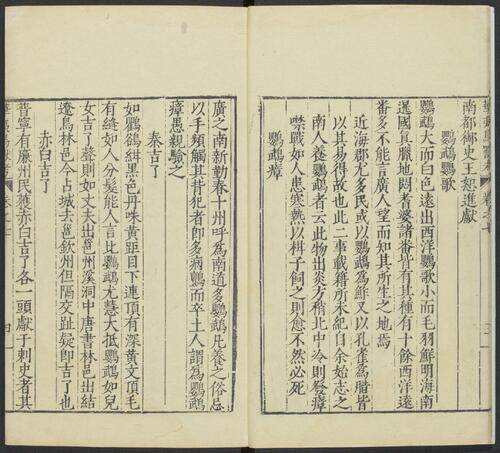 南都御史王恕進獻
鸚鵡鸚歌
鸚鵡大而白色遠出西洋鸚歌小而毛羽鮮明海南
暹國真臘地悶耆婆諸番皆有其種有十餘西洋遠
番多不能言廣人望而知其所生之地焉
近海郡尤多民或以鸚鵡為鮓又以孔雀為腊皆
以其易得故也此二事載籍所未紀自余始志之
南人養鸚鵡者云此物出炎方稍北中冷則發瘴
噤戰如人患寒熱以柑子飼之則愈不然必死
鸚鵡瘴
廣之南新勤春十州呼為南道多鸚鵡凡養之俗忌
以手頻觸其背犯者即多病顫而卒土人謂為鸚鵡
瘴愚親驗之
秦吉了
如鸜鵒紺黑色丹咮黃距目下連頂有深黃文頂毛
有縫如人分髮能人言比鸚鵡尤慧大抵鸚鵡如兒
女吉了聲則如丈夫出邕州溪洞中唐書林邑出結
遼鳥林邑今占城去邕欽州但隔交趾疑即吉了也
赤白吉了
普寧有廉州民獲赤白吉了各一頭獻于刺史者其